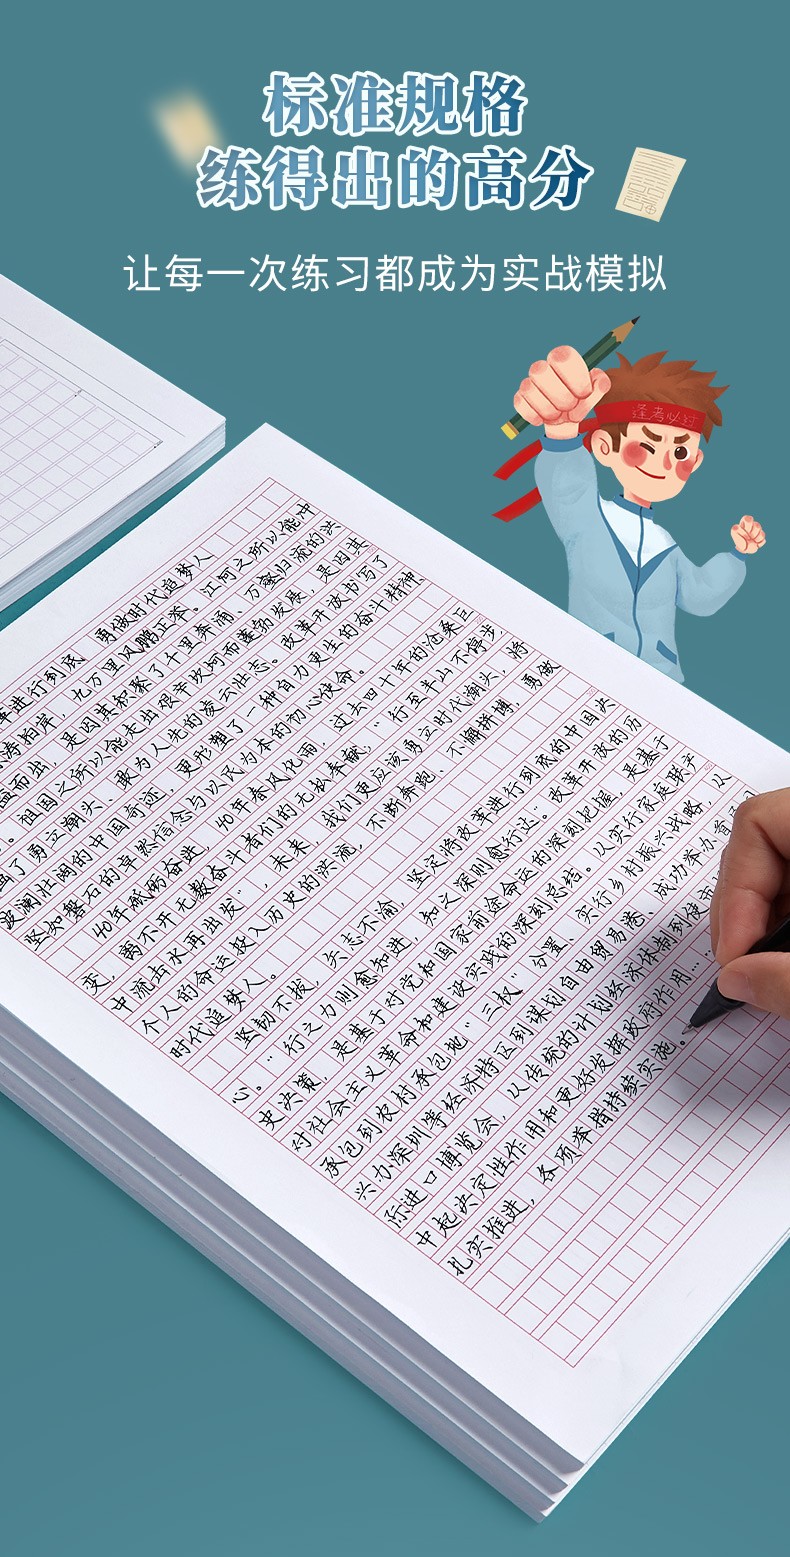 标准规格
练得出的高分
让每一次练习都成为实战模拟
逢考必过
革进行到底 勇做时代追梦人
涛拍岸，九万里风鹏正举。江河之所以能冲
而出，是因其积聚了千里奔涌、万壑归流的洪
。祖国之所以能走出艰辛坎坷而蓬勃发展，是因其
了勇立潮头、敢为人先的凌云壮志。改革开放书写了
波澜壮阔的中国奇迹，更形塑了一种自力更生的奋斗精神
坚如磐石的卓然信念与以民为本的初心使命。
40年砥砺奋进，40年春风化雨，过去四十年的沧桑巨
变，离不开无数奋斗者们的无私奉献，“行至半山不停步
中流击水再出发”，未来，我们更应该勇立时代潮头，将
个人的命运投入历史的洪流，不断奔跑、不懈拼搏，勇做
时代追梦人。
坚韧不拔，矢志不渝，坚定将改革进行到底的中国决
心。“行之力则愈知进，知之深则愈行达。”改革开放的历
史决策，是基于对党和国家前途命运的深刻把握，是基于
对社会主义革命和建设实践的深刻总结。从实行家庭联产
承包到农村承包地“三权”分置、实行乡村振兴战略，从
兴办深圳等经济特区到谋划自由贸易港、成功举办首届国
际进口博览会，从传统的计划经济体制到使市
中起决定性作用和更好发挥政府作用……
扎实推进，各项举措持续实施。